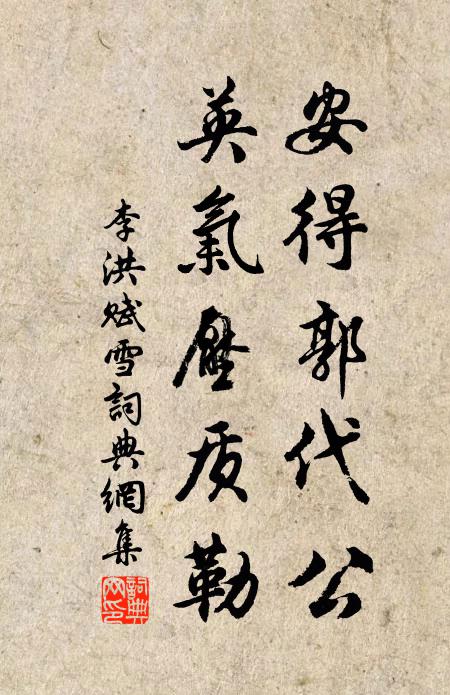 安得郭代公
英氣壓质勒
李洪賦雪詞典網集
詞典网印